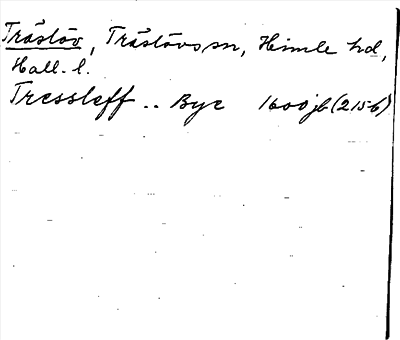 Tråslöv, Tråslövs sn, Himle hd,
Hall. l.
Tressleff .. Bye 1600 jb (215b)